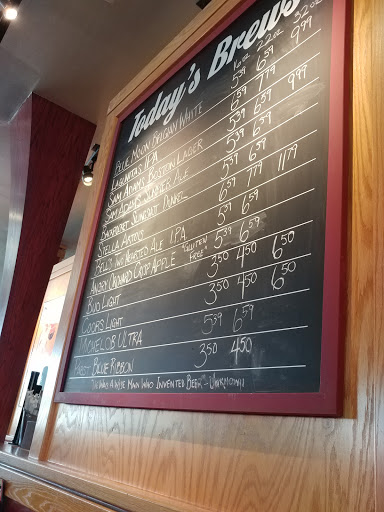 Today's Brews
16oz 22oz 32oz
BLUE MOON BELGIAN WHITE 5.39 6.59 9.99
LAGUNITAS IPA 6.59 7.79
SAM ADAMS BOSTON LAGER 5.39 6.59 9.99
SAM ADAMS ALE 5.39 6.59
DUNKEL 5.39 6.59
STELLA ARTOIS 6.59 7.79 11.79
BELL'S TWO HEARTED ALE IPA 5.39 6.59
ANGRY ORCHARD CRISP APPLE *GLUTEN FREE 5.39 6.59
BUD LIGHT 3.50 4.50 6.50
COORS LIGHT 3.50 4.50 6.50
MICHELOB ULTRA 5.39 6.59
PABST BLUE RIBBON 3.50 4.50
WAS A WISE MAN WHO INVENTED BEER" - UNKNOWN